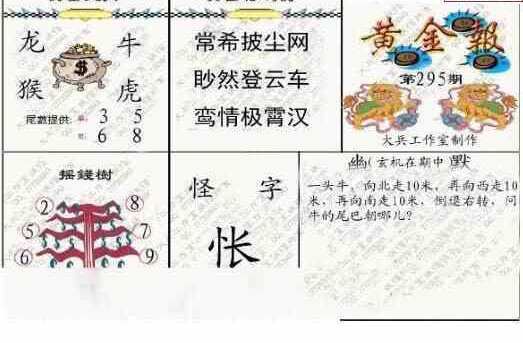 龙 牛
猴 虎
尾数提供: 3 5
6 8
常希披尘网
眇然登云车
鸾情极霄汉
黄金報
第295期
大兵工作室制作
摇錢樹
2 8
5 7
6 9
怪 字
怅
幽(玄机在期中 默
一头牛,向北走10米,再向西走10
米,再向南走10米,倒缇右转,问
牛的尾巴朝哪儿?